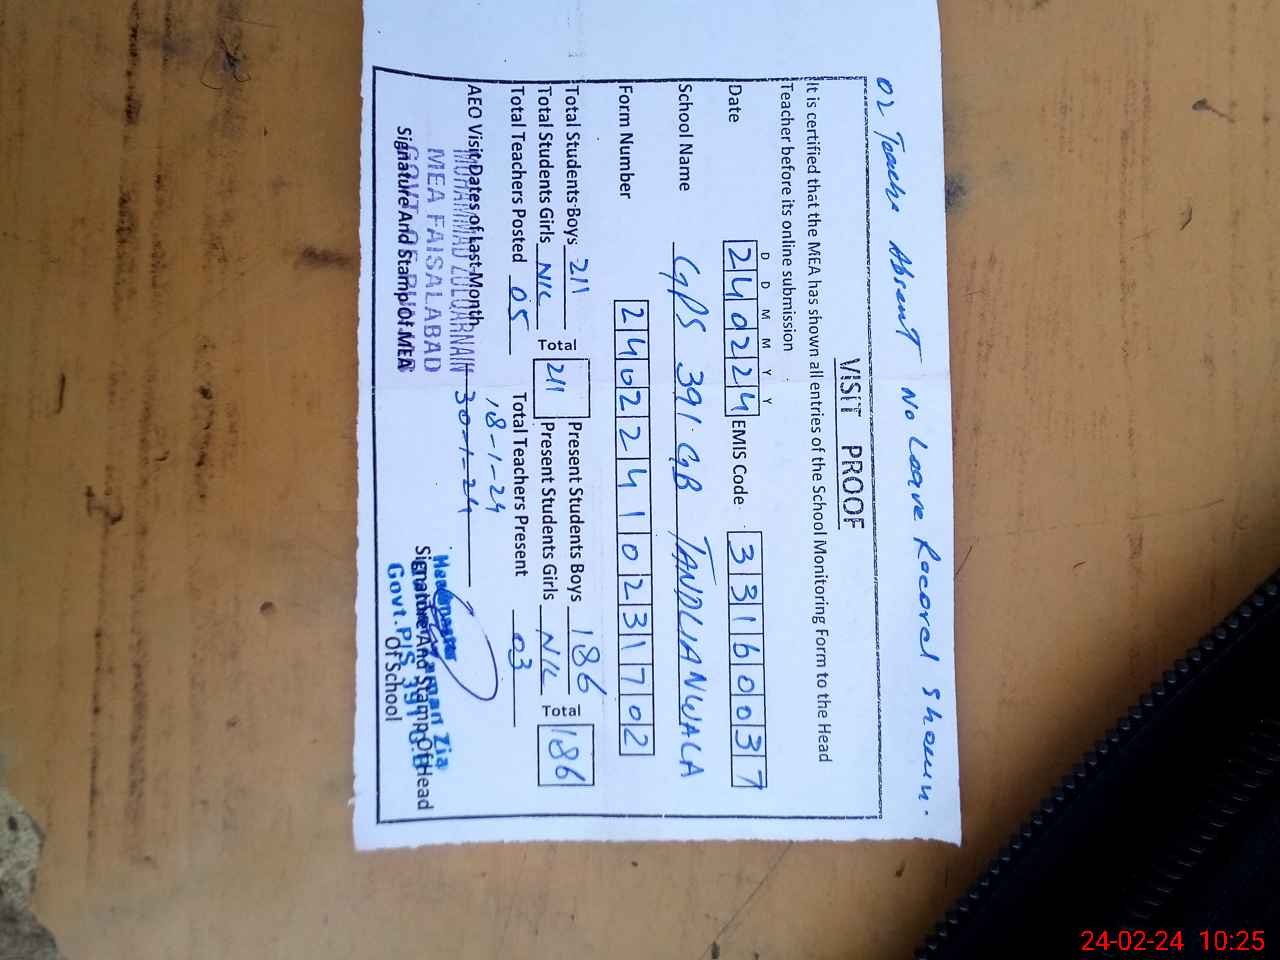 02 Teache Absent No Leave Record shown.
VISIT PROOF
It is certified that the MEA has shown all entries of the School Monitoring Form to the Head
Teacher before its online submission
D D M M Y Y
Date 240224 EMIS Code 33160037
School Name GPS 391·GB TANDLIANWALA
Form Number 24022410231702
Total Students Boys 211 Total 211 Present Students Boys 186 Total 186
Total Students Girls NIL Present Students Girls NIL
Total Teachers Posted 05 Total Teachers Present 03
18-1-24
AEO Visit Dates of Last Month 30-1-24
MUHAMMAD ZULQARNAIN
MEA FAISALABAD
Signature And Stamp Of MEA
Headmaster
Zia
Signature And Stamp Of Head
Of School
Govt. P/S 391 G.B
24-02-24 10:25